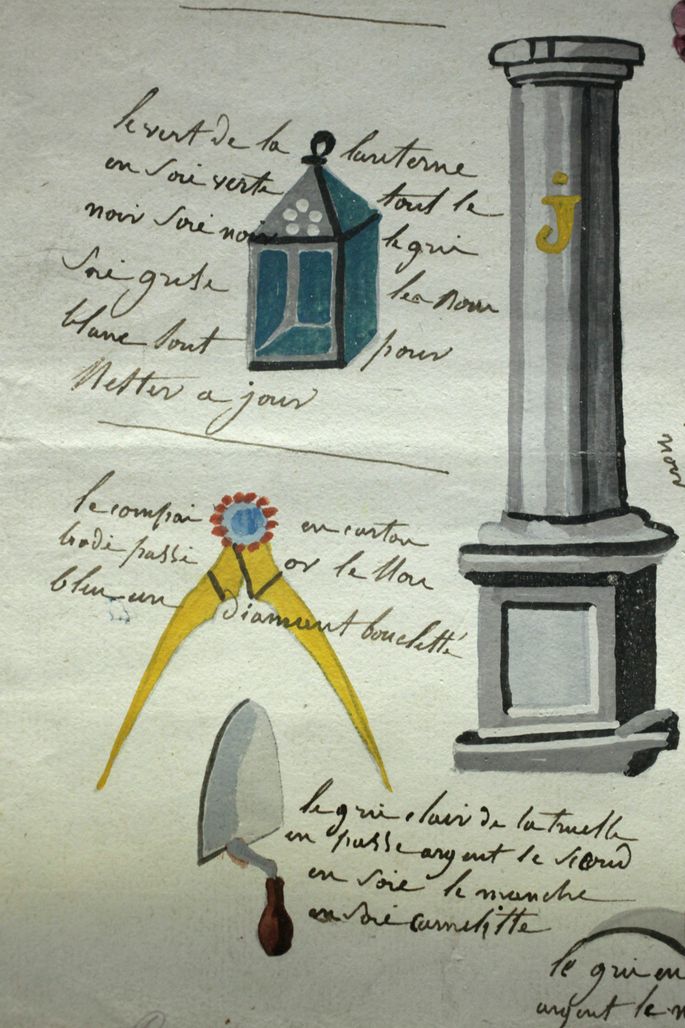 le vert de la lanterne
en soie verte tout le
noir soie noir le gris
soie grise les
blanc tout pour
Metter a jour
j
le compai en carton
brodé passé or le
bleu un diamant boucletté
le gris clair de la truelle
en passe argent le
en soie le manche
en soie carmelitte
le gris en
argent le